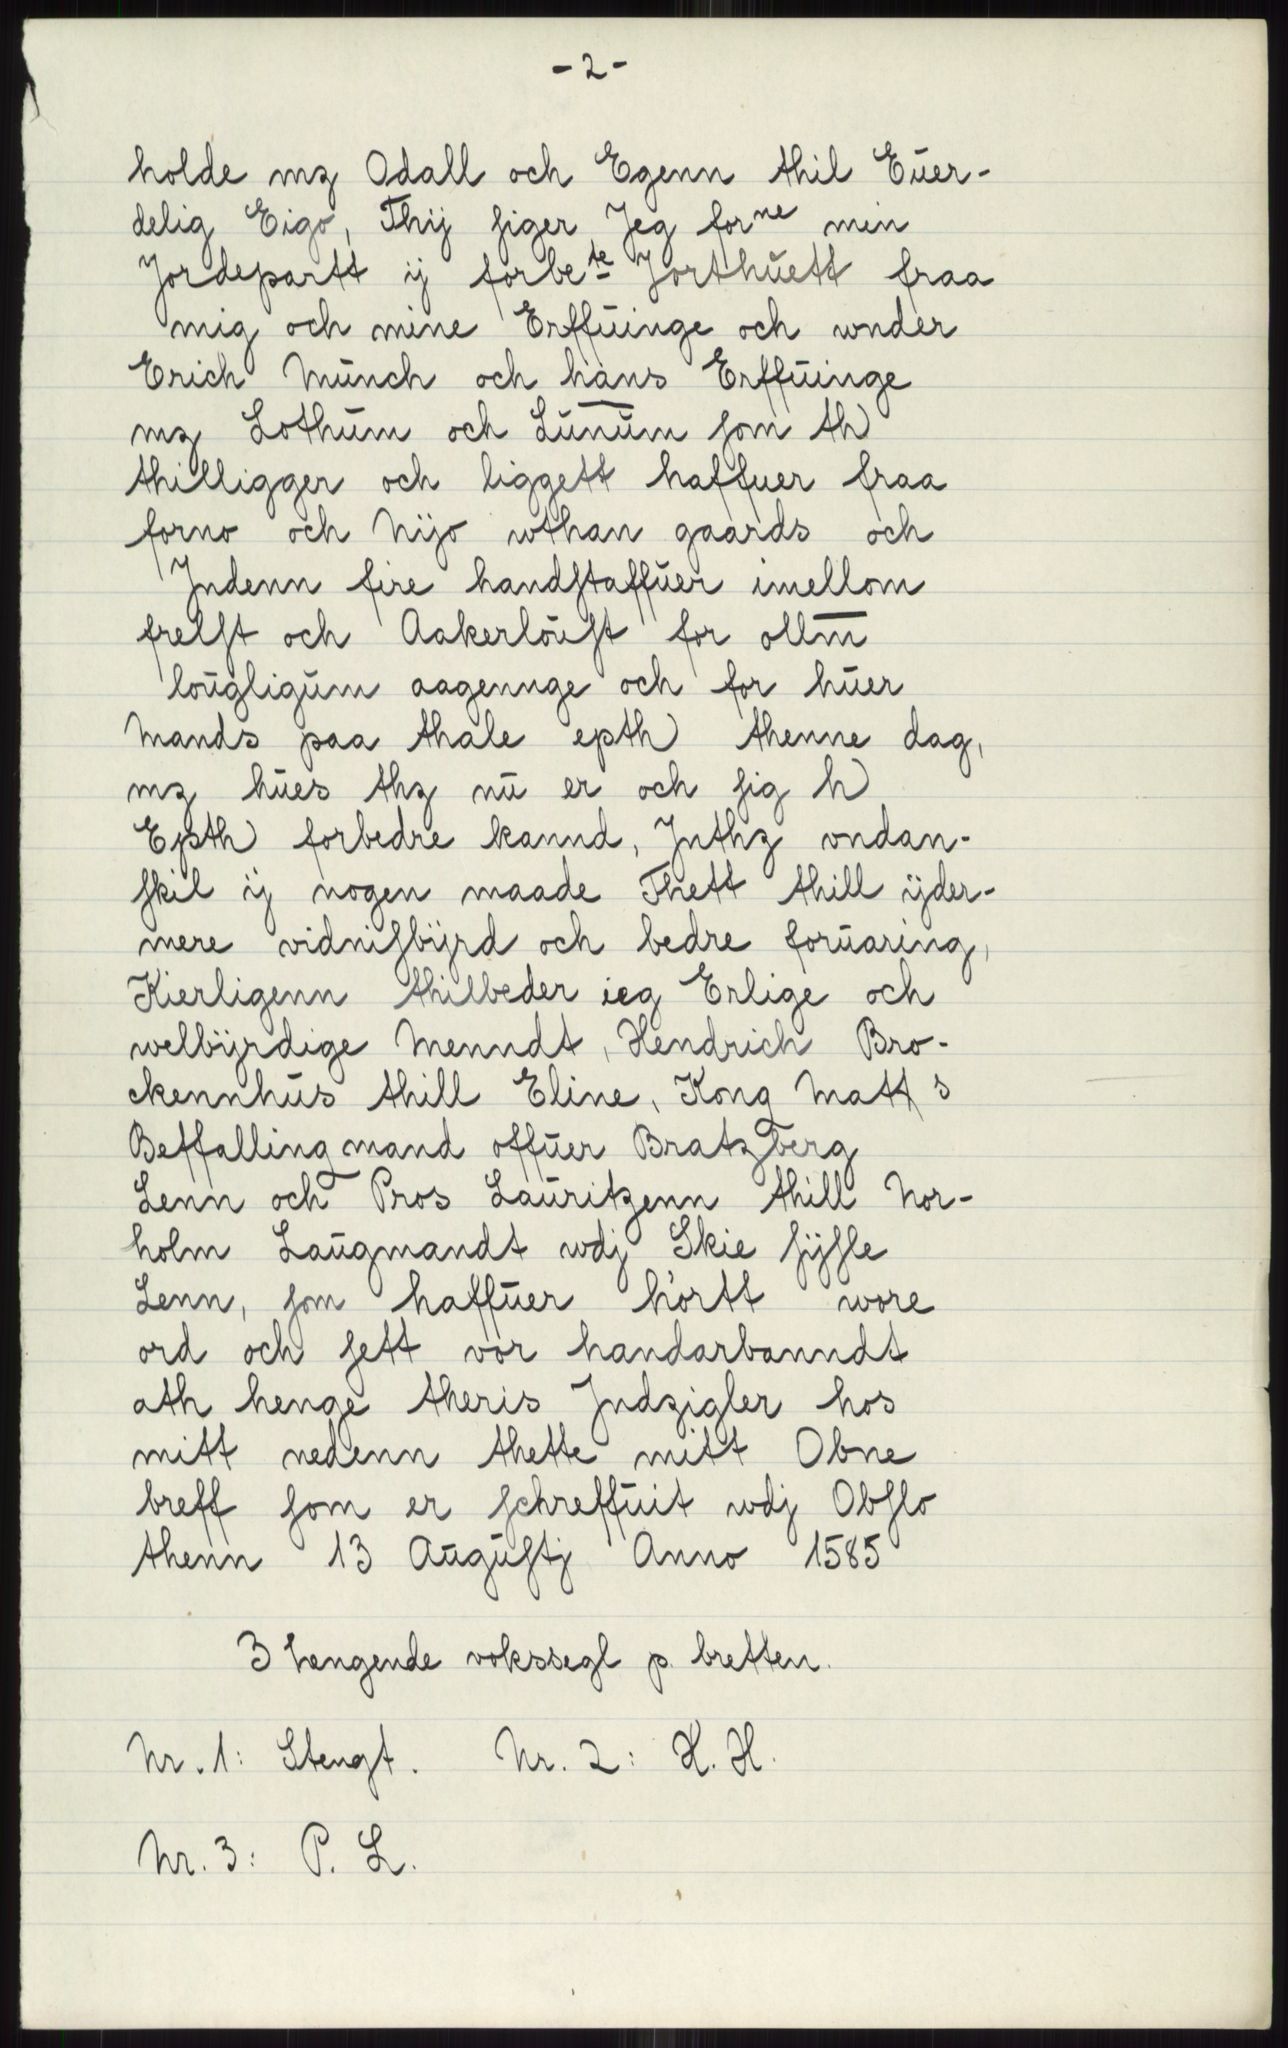 - 2 -
holde mz Odall och Egenn thil Eŭer-
delig Eigo, Thij ſiger Jeg forⁿᵉ min
Jordepartt ij forbeᵗᵉ Jorthŭett fraa
mig och mine Erffŭinge och wnder
Erich Mŭnch och hans Erffŭinge
mz Lothŭm och Lŭnŭm ſom th
thilligger och liggett haffuer fraa
forno och Nijo wthan gaards och
Jndenn fire handſtaffŭer imellom
frelſt och Aakerlöŭſt for ollm̅
loŭgligŭm aagennge och for hŭer
Mands paa thale epth thenne dag,
mz hŭes thz nŭ er och ſig h
Epth forbedre kannd, Jnthz vndan-
ſkil ij nogen maade Thett thill ÿder-
mere vidniſbÿrd och bedre forŭaring,
Kierligenn thilbeder ieg Erlige och
welbÿrdige Menndt, Hendrich Bro-
ckennhŭs thill Eline, Kong Matts
Beffalling mand offŭer Bratzberg
Lenn och Pros Laŭritzenn thill Nor-
holm Laŭgmandt wdj Skie ſÿſle
Lenn, ſom haffŭer hörtt wore
ord och ſett vor handarbanndt
ath henge theris Jndzigler hos
mitt nedenn thette mitt Obne
breff ſom er ſchreffŭit wdj Obſlo
thenn 13 Aŭgŭſtj Anno 1585
3 hengende vokssegl p. bretten.
Nr. 1: Stengt. Nr. 2: H. H.
Nr. 3: P. L.